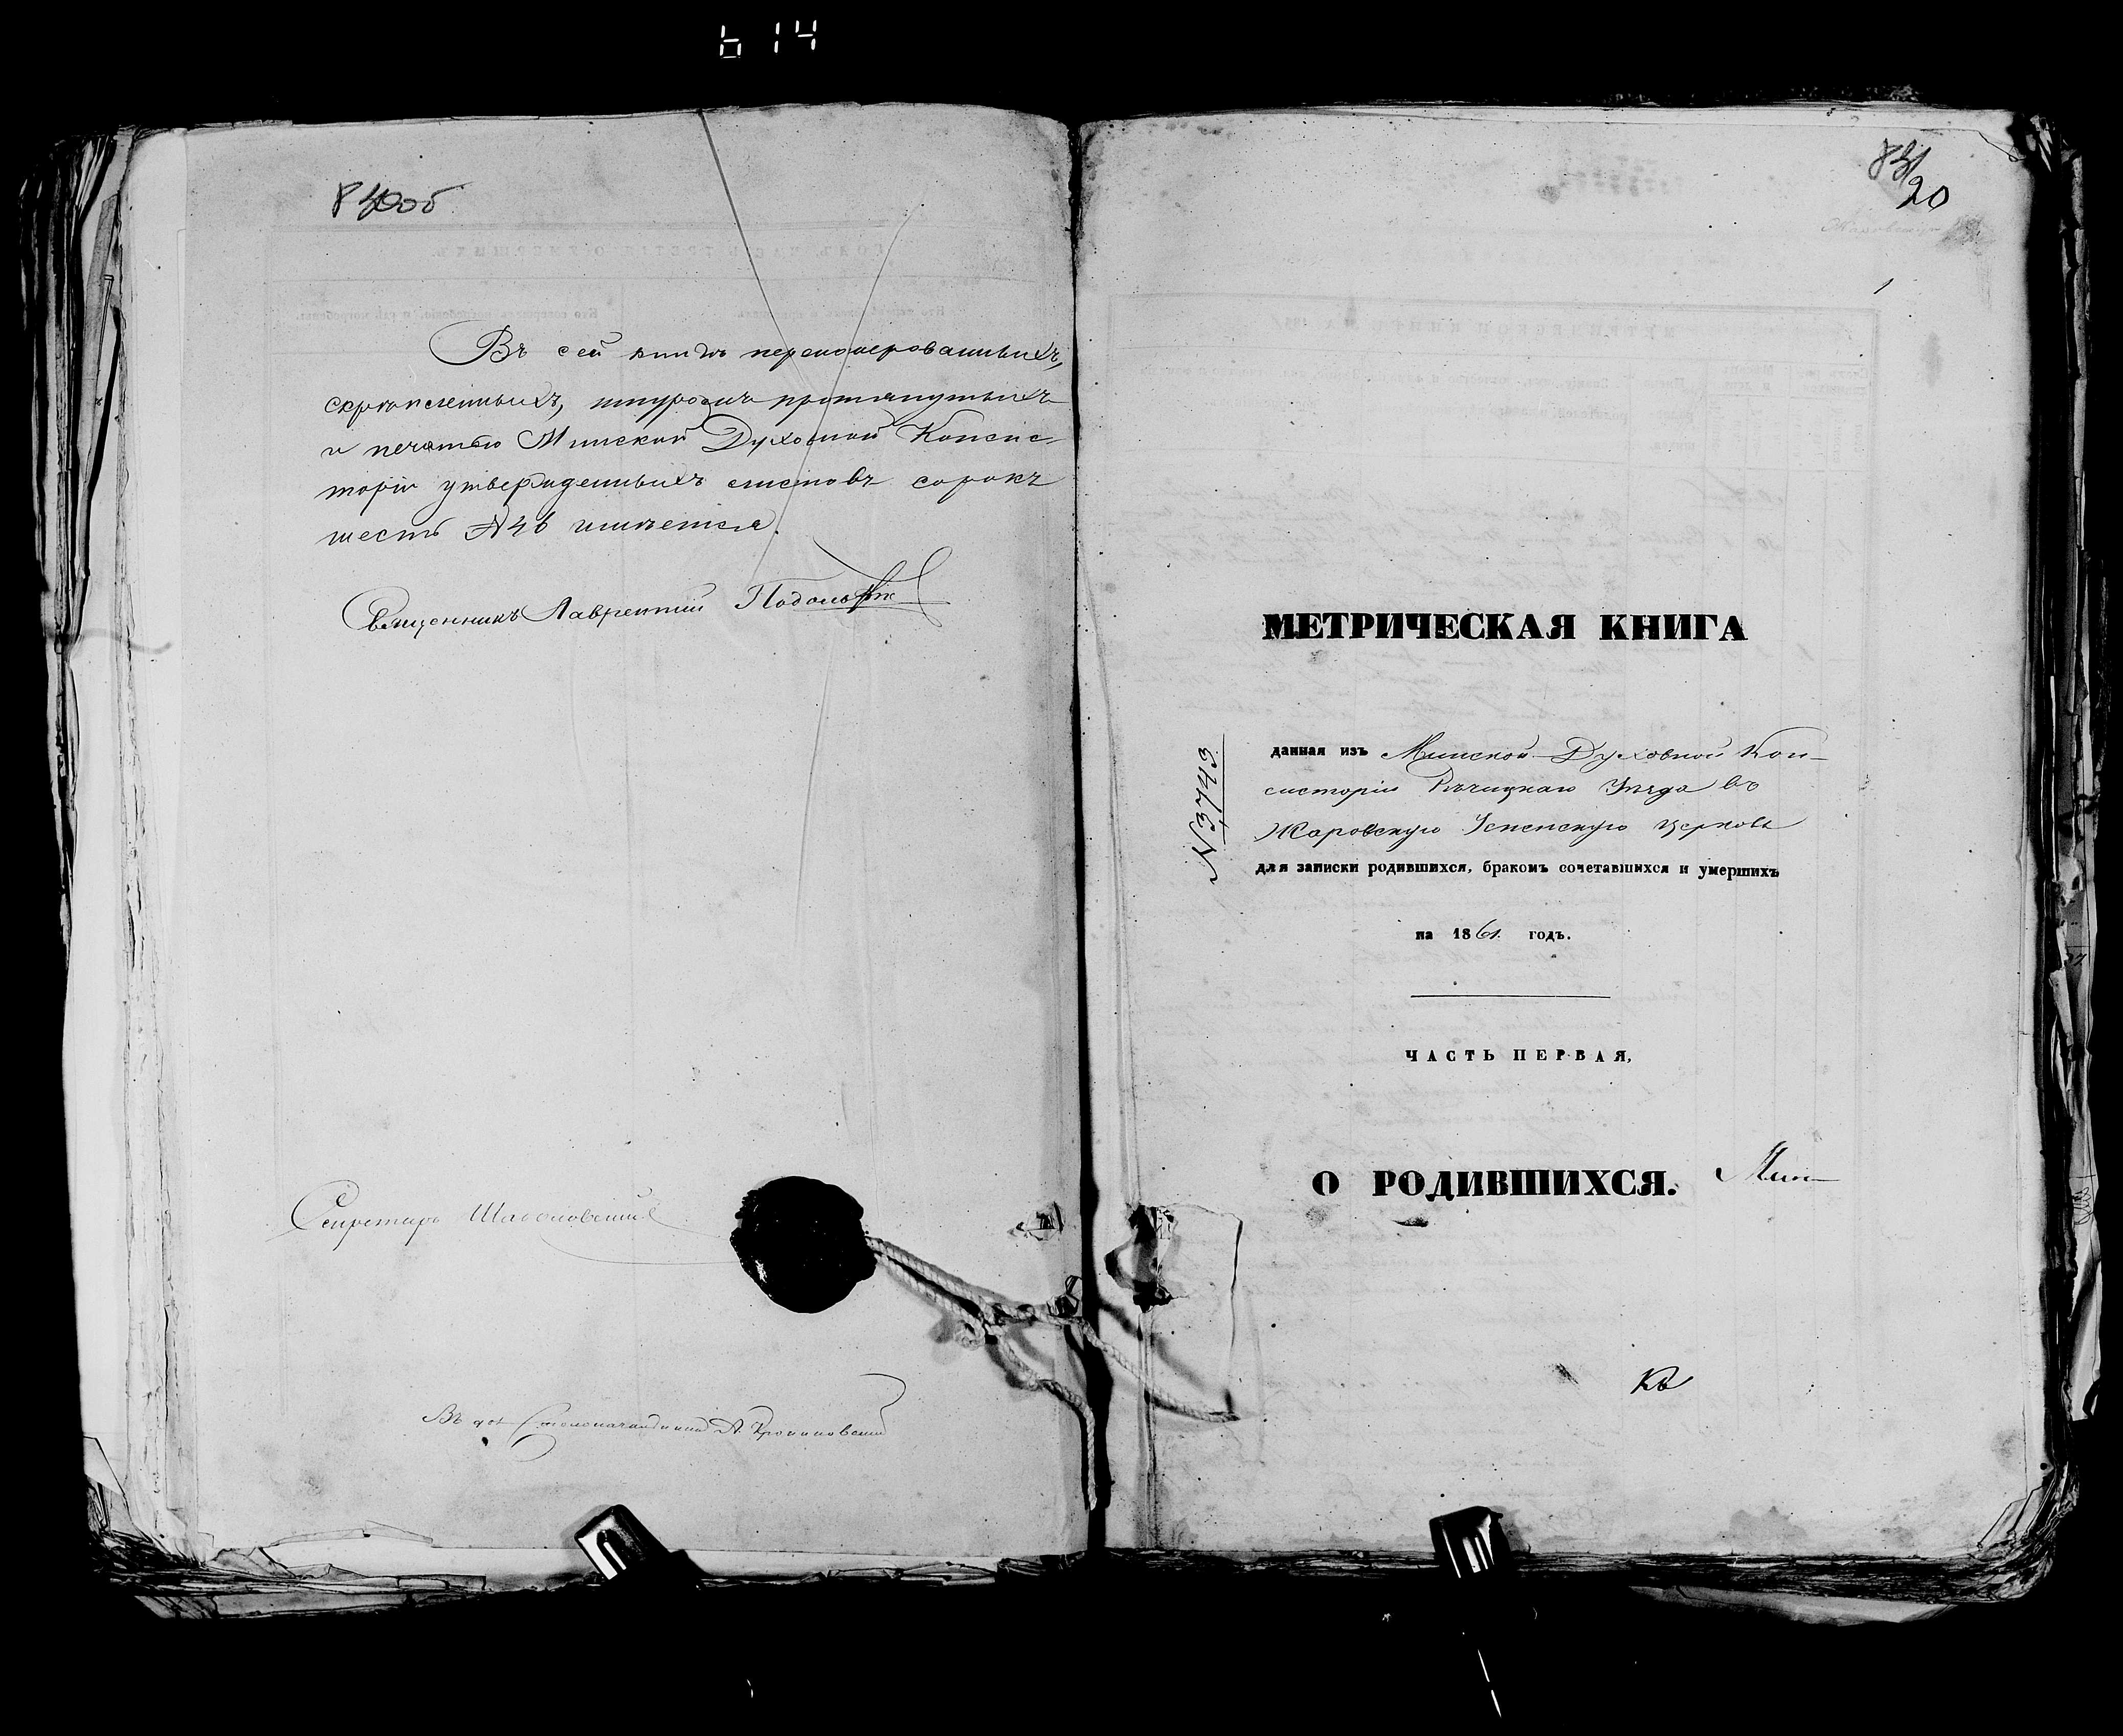 614
Въ сей книгѣ перенумерованныхъ,
скрѣпленныхъ, шнуромъ протянутыхъ
и печатью Минской Духовной Консис-
торіи утвержденныхъ листовъ сорокъ
шесть № 46 имѣется.
Священникъ Лаврентій
Секретарь
Въ дол. Столоначальника А.
20
1
МЕТРИЧЕСКАЯ КНИГА
N 3743
данная изъ Минской Духовной Кон-
систоріи Рѣчицкаго Уѣзда въ
Жаровскую Успенскую церковь
для записки родившихся, бракомъ сочетавшихся и умершихъ
на 1861. годъ.
ЧАСТЬ ПЕРВАЯ,
О РОДИВШИХСЯ. Мин-